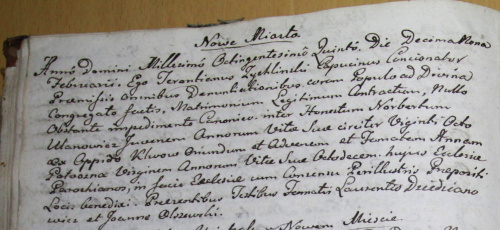 Nowe Miasto
Anno Domini Millesimo Octingentesimo Quinto. Die Decima Nona
Februarii. Ego Terentianus Capucinus Concionator
Præmissis omnibus Denuntiationibus coram Populo ad Divina
Congregato factis, Matrimonium Legitimum Contractum, Nullo
Obstante impedimento Canonico, inter Honestum Norbertum
Juvenem Annorum Vitæ Suæ circiter Viginti Octo
ex Oppido Oriundum et Advenam et Annam
Virginem Annorum Vitæ Suæ Octodecem. hujus Ecclesiæ
Parochianos, in facie Ecclesiæ cum Consensu Perillustris Præpositi
Loci benedixi. Præsentibus Testibus Famatis Laurentio
et Joanne Olszewski.